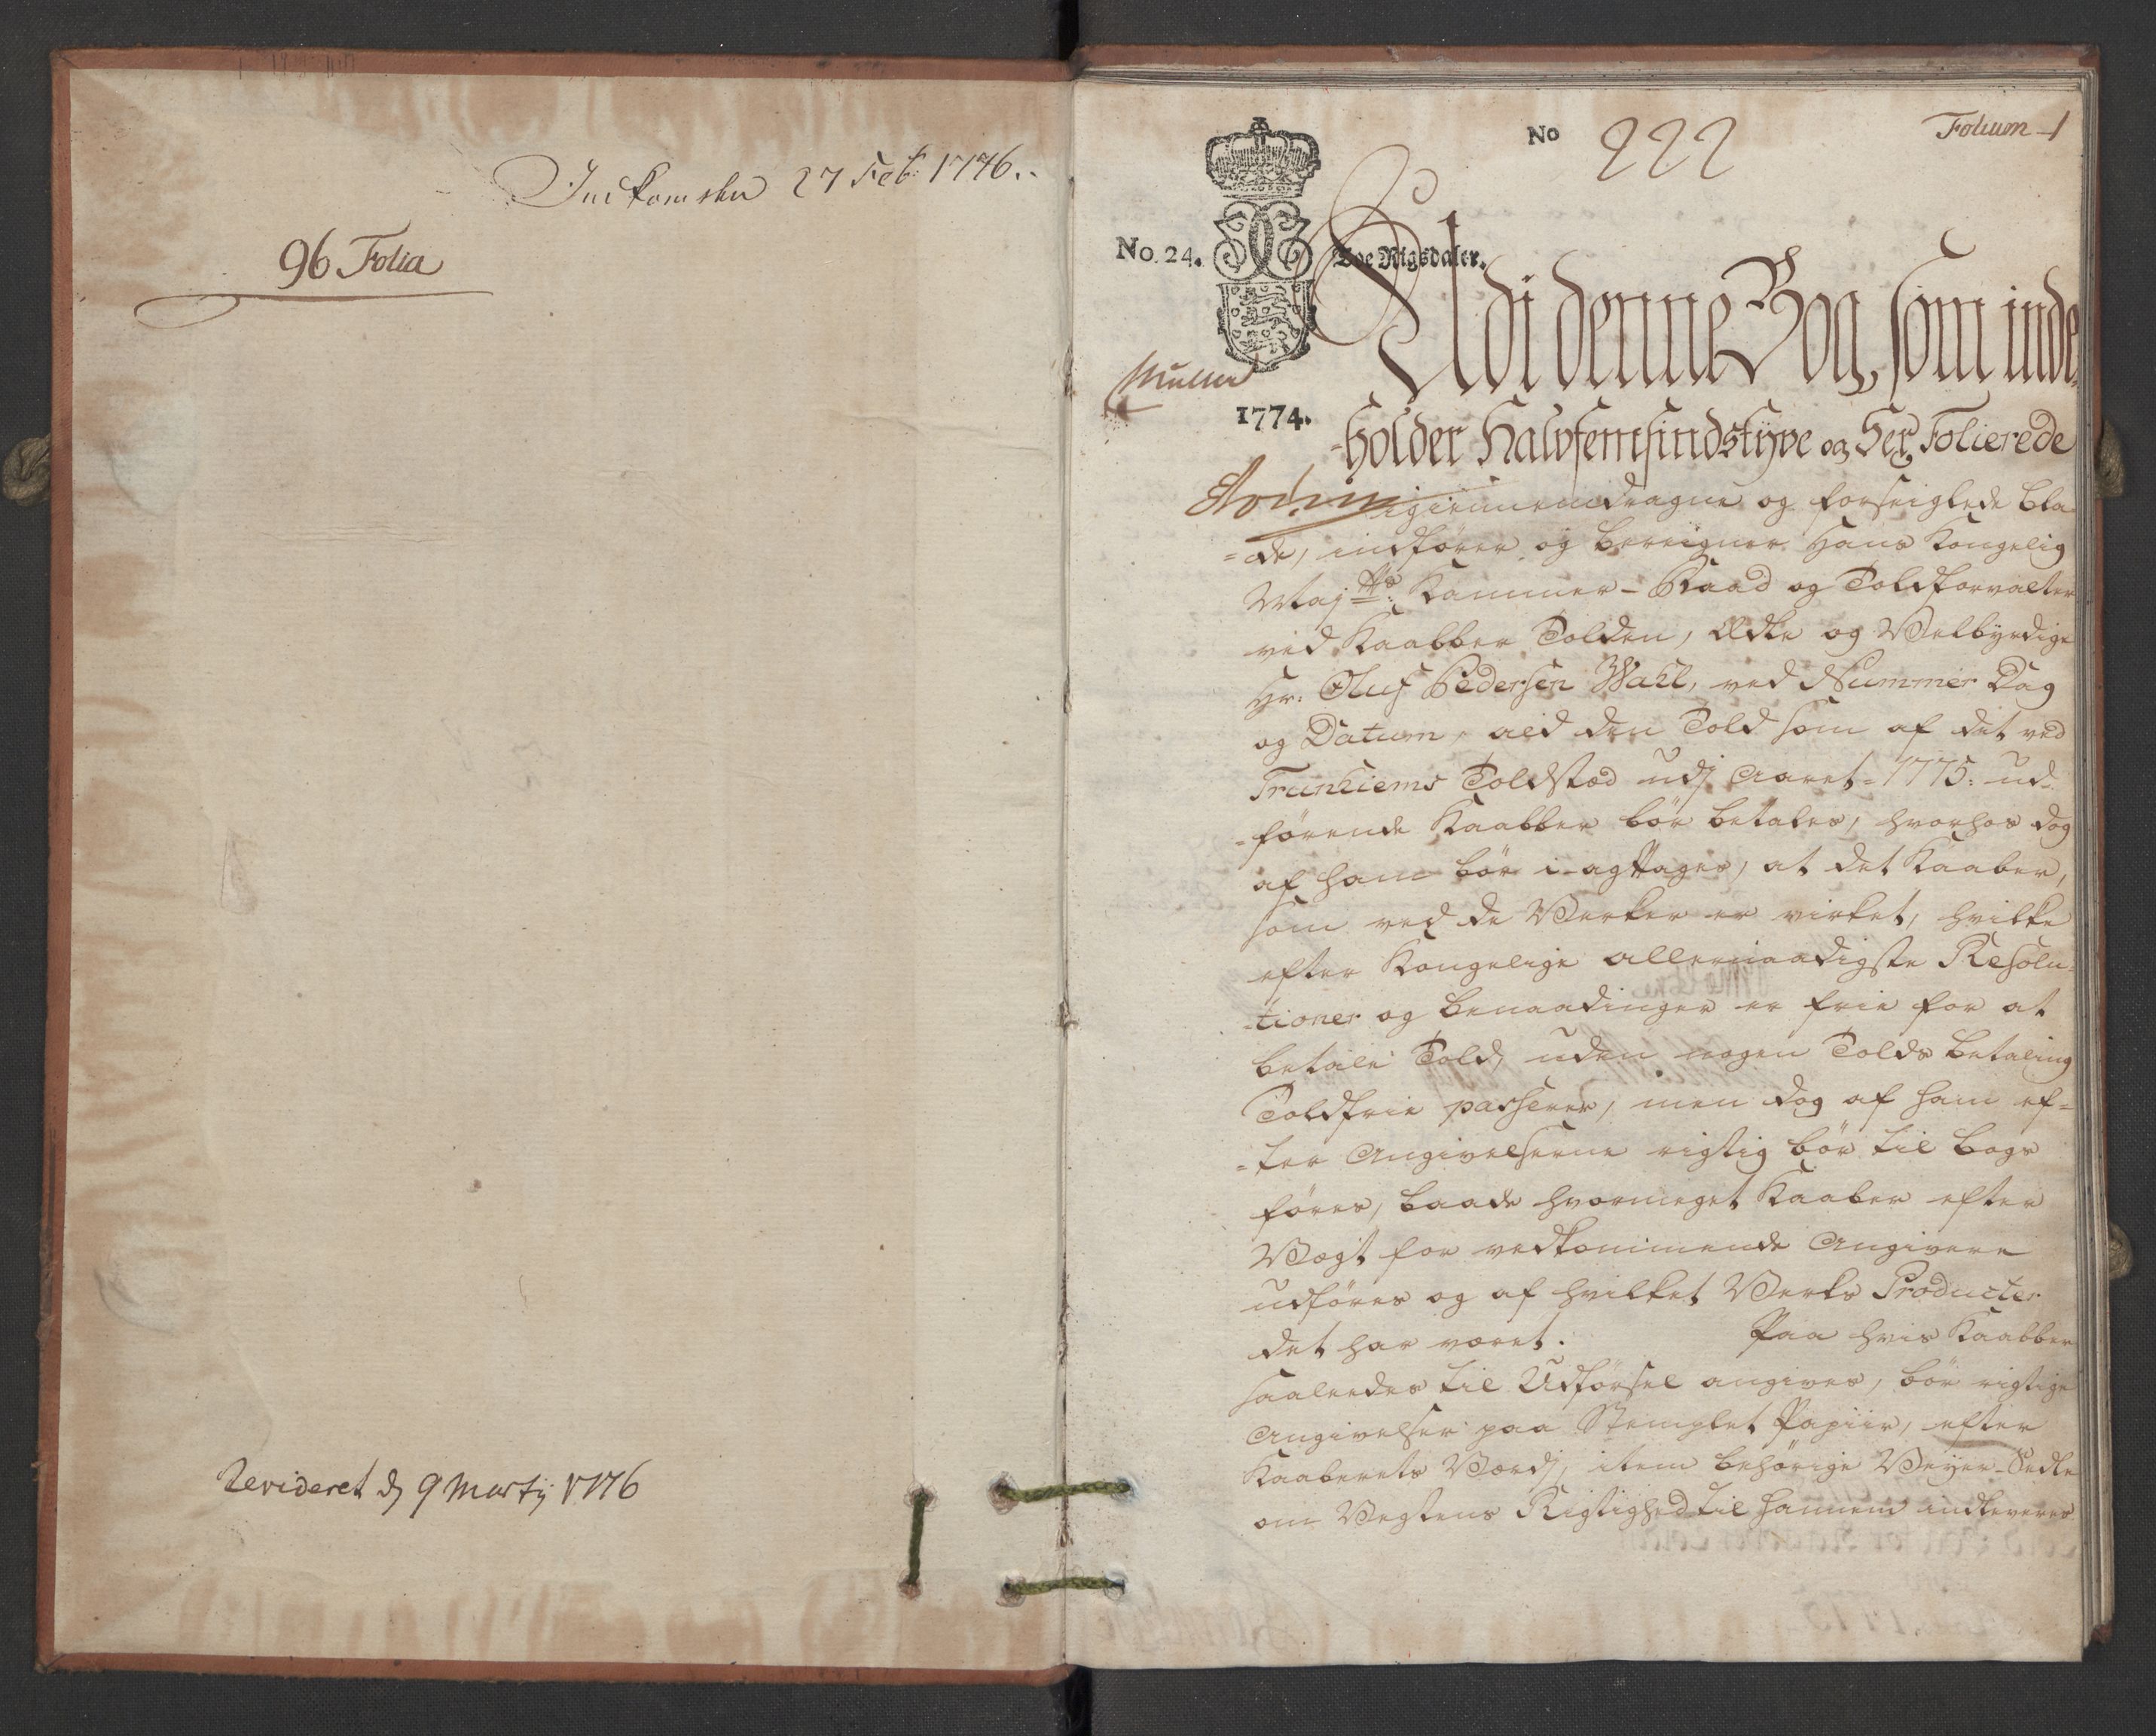 Indkomsten 27 Feb: 1776.
96 Folia
Revideret d 9 Martij 1776
No 222
Folium 1
No. 24.
Toe Rigsdaler.
Müller
1774.
Udi denne Bog, som inde-
-holder Halvfemsindstyve og Sex, Folierede
igiennemdragne og forseiglede Bla-
=de, indfører og bereigner Hans Kongelig
Mayts: Kammer-Raad og Toldforvalter
ved Kaabber Tolden, Ædle og Velbyrdige
Hr. Oluf Pedersen Wahl, ved Nummer Dag
og Datum, ald den Told som af det ved
Trunhiems Toldstæd udj Aaret 1775: ud-
-førende Kaabber bør betales, hvorhos dog
af ham bør i-agttages, at det Kaaber,
som ved de Verker er virket, hvilke
efter Kongelige allernaadigste Resolu-
tioner og benaadinger er frie for at
betale Told, uden nogen Tolds betaling
Toldfrie passerer, men dog af ham ef-
=ter Angivelserne rigtig bør til bogs
føres, baade hvormeget Kaaber efter
Vægt for vedkommende Angivere
udføres og af hvilket Verks Producter
det har været. Paa hvis Kaabber
saaledes til Udførsel angives, bør rigtige
Angivelser paa Stemplet Papiir, efter
Kaaberets Værdj, item behørige Veyer-Sedle
om Vegtens Rigtighed til hannem indleveres